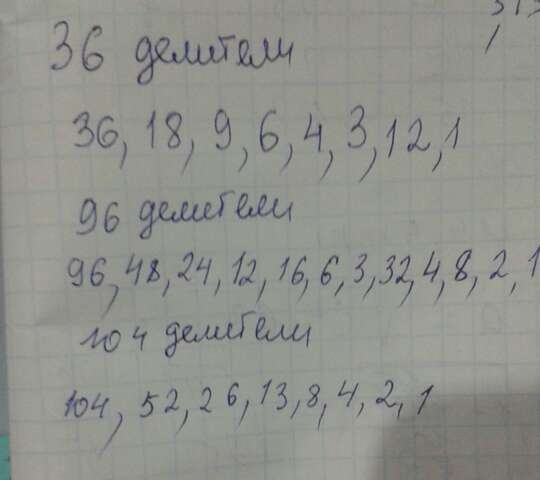 36 делители
36, 18, 9, 6, 4, 3, 12, 1
96 делители
96, 48, 24, 12, 16, 6, 3, 32, 4, 8, 2, 1
104 делители
104, 52, 26, 13, 8, 4, 2, 1